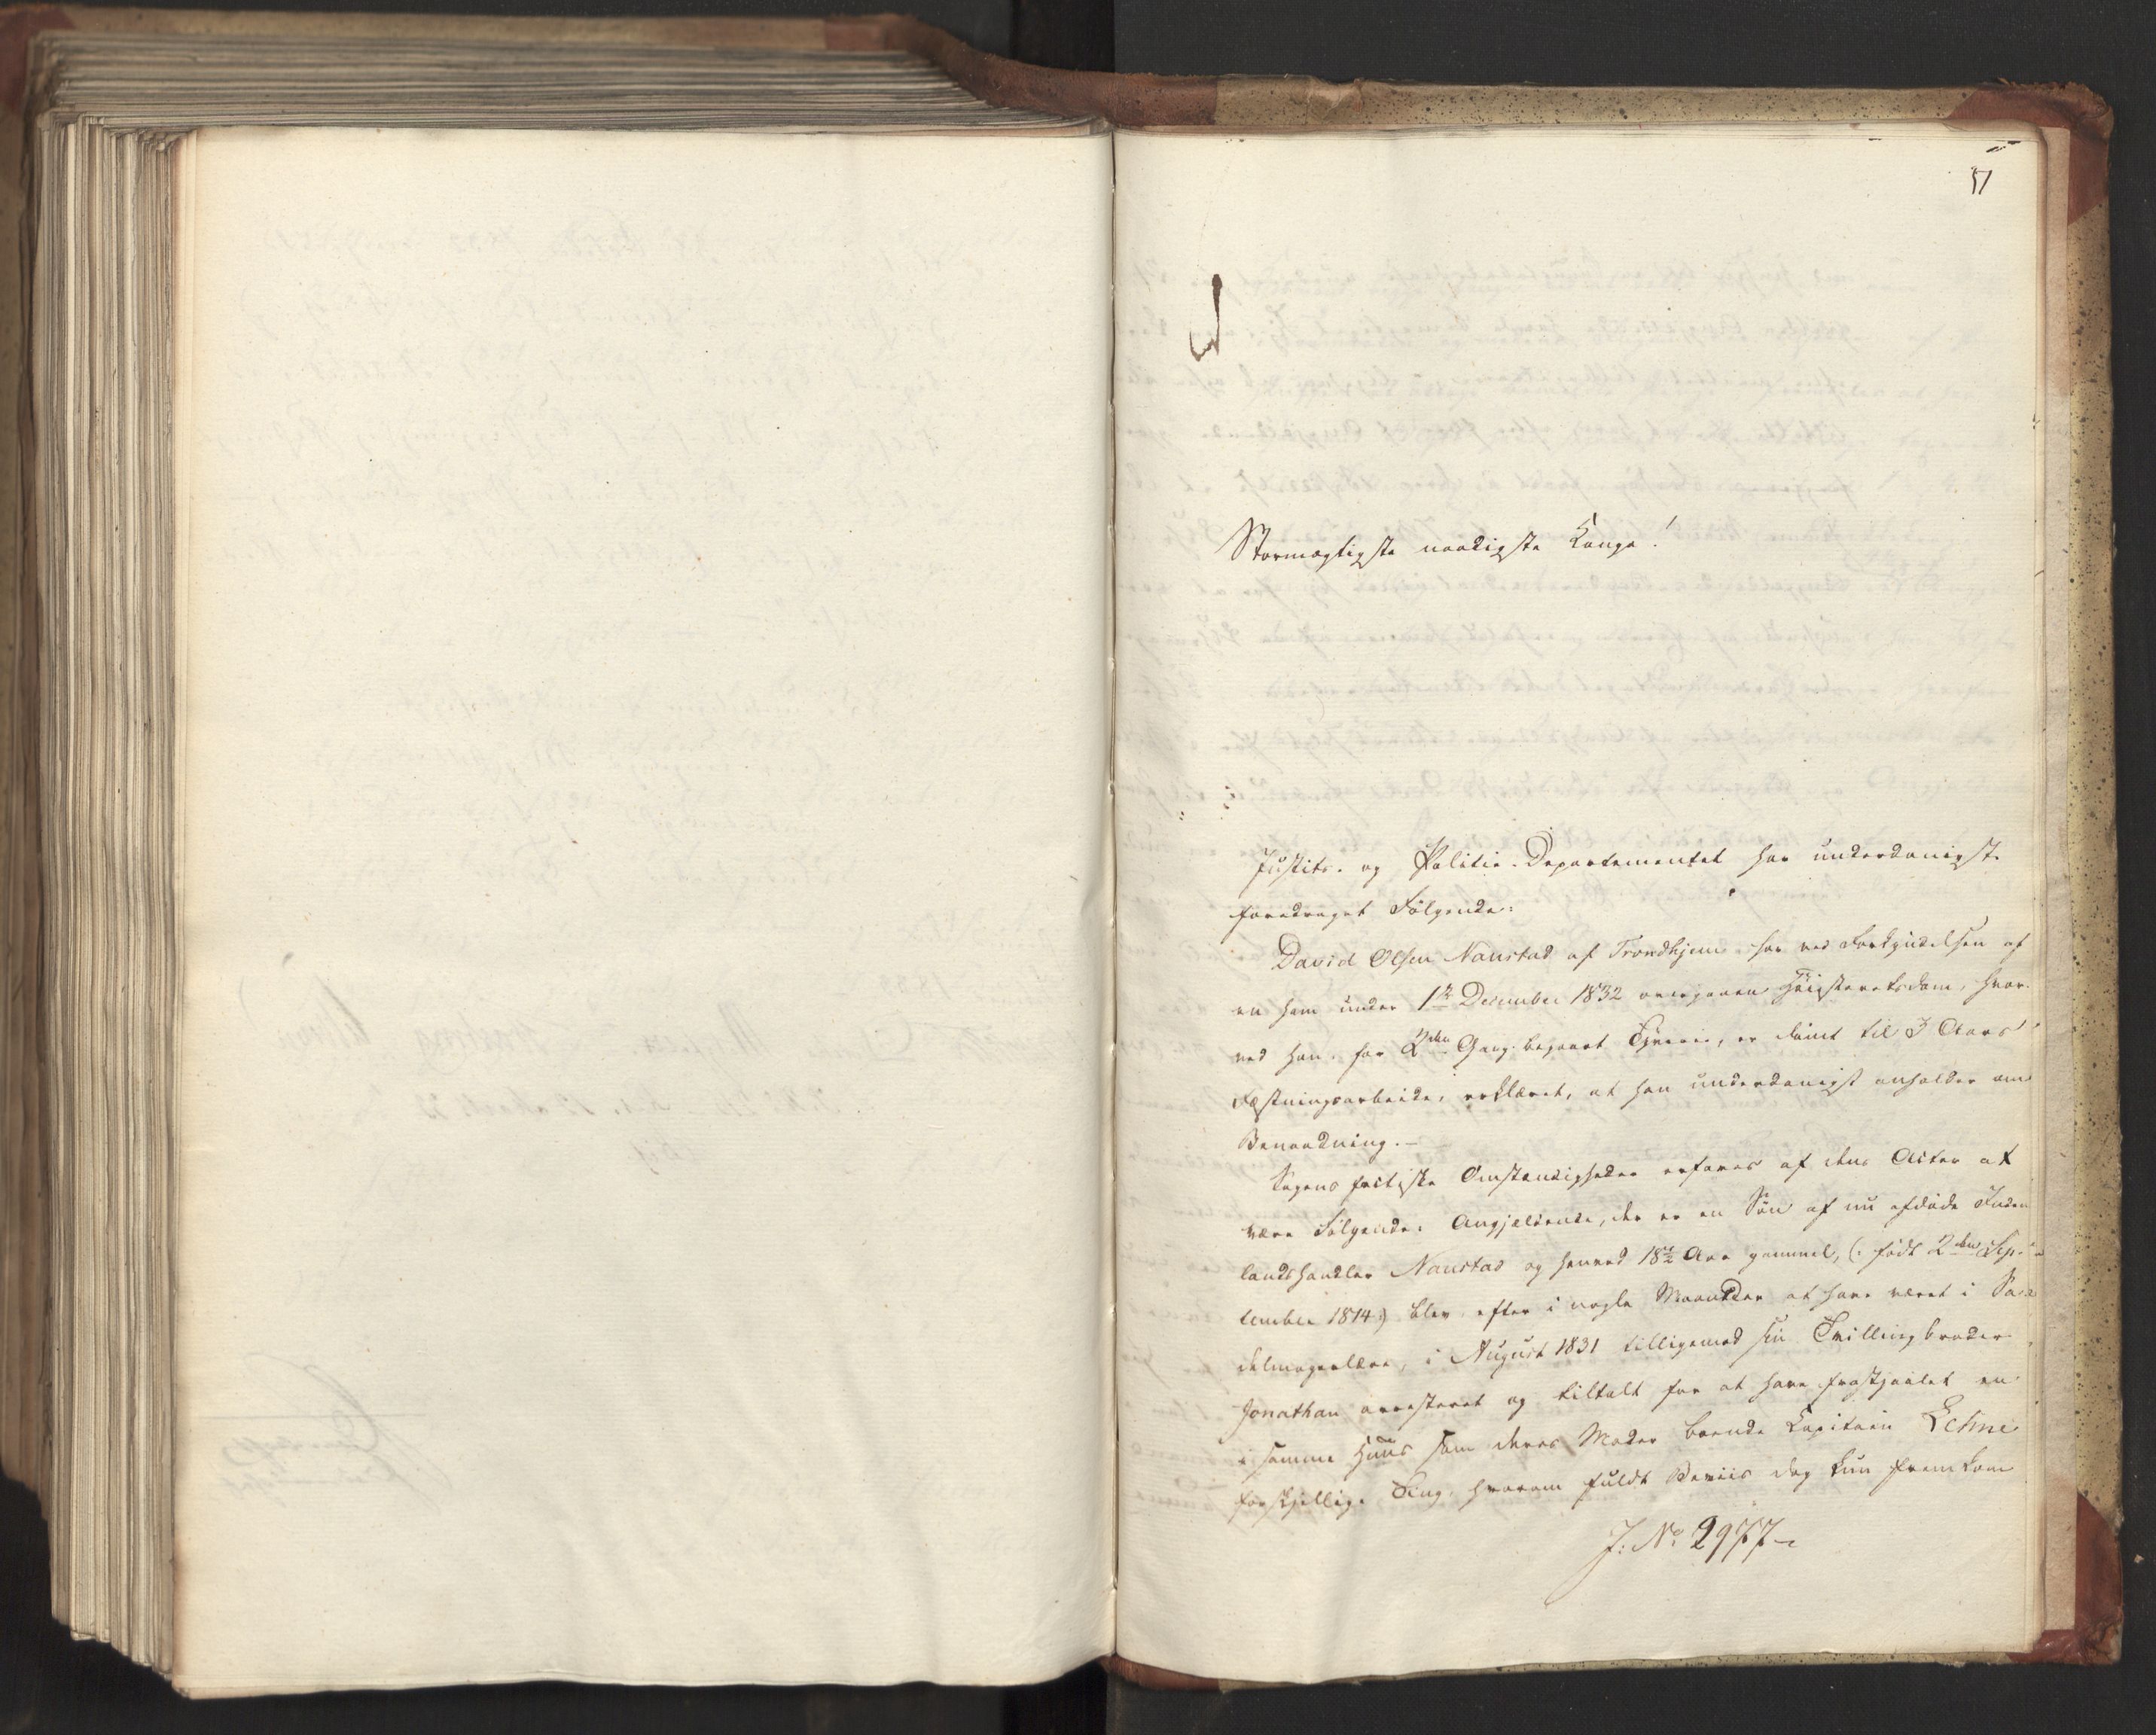 51
Stormægtigste naadigste Konge!
Justits- og Politie-Departementet har underdanigst
foredraget Følgende:
David Olsen Naustad af Trondhjem har ved Forkyndelsen af
en ham under 1ste December 1832 overgaaen Høiesteretsdom, hvor-
ved han for 2den Gang begaaet Tyverie, er dømt til 3 Aars
Fæstningsarbeide, erklæret, at han underdanigst anholder om
Benaadning.-
Sagens factiske Omstændigheder erfares af dens Acter at
være Følgende: Angjældende, der er en Søn af nu afdøde Inden-
landshandler Naustad og henved 18½ Aar gammel, (: født 2den Sep-
tember 1814:) blev efter i nogle Maaneder at have været i Sa-
delmagerlære, i August 1831 tilligemed sin Tvillingbroder
Jonathan arresteret og tiltalt for at have frastjaalet en
i samme Huus som deres Moder boende Capitain
forskjellige Ting, hvorom fuldt Beviis dog kun fremkom
J: No 2977-